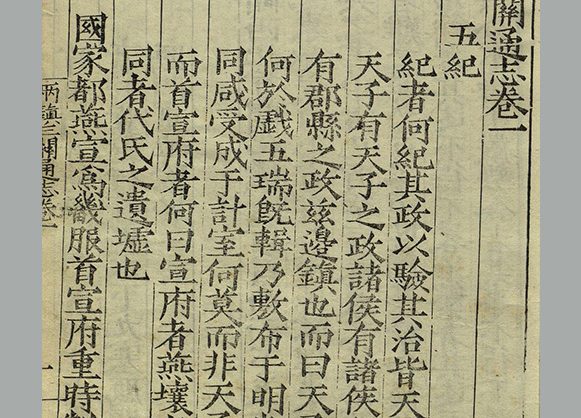 關通志卷一
五紀
紀者何紀其政以驗其治皆天
天子有天子之政諸侯有諸侯
有郡縣之政茲邊鎮也而曰天
何於戲五瑞旣輯乃敷布于明
同咸受成于計室何莫而非天
而首宣府者何曰宣府者燕壤
同者代氏之遺墟也
國家都燕宣爲畿服首宣府重時
兩鎮三關通志卷一